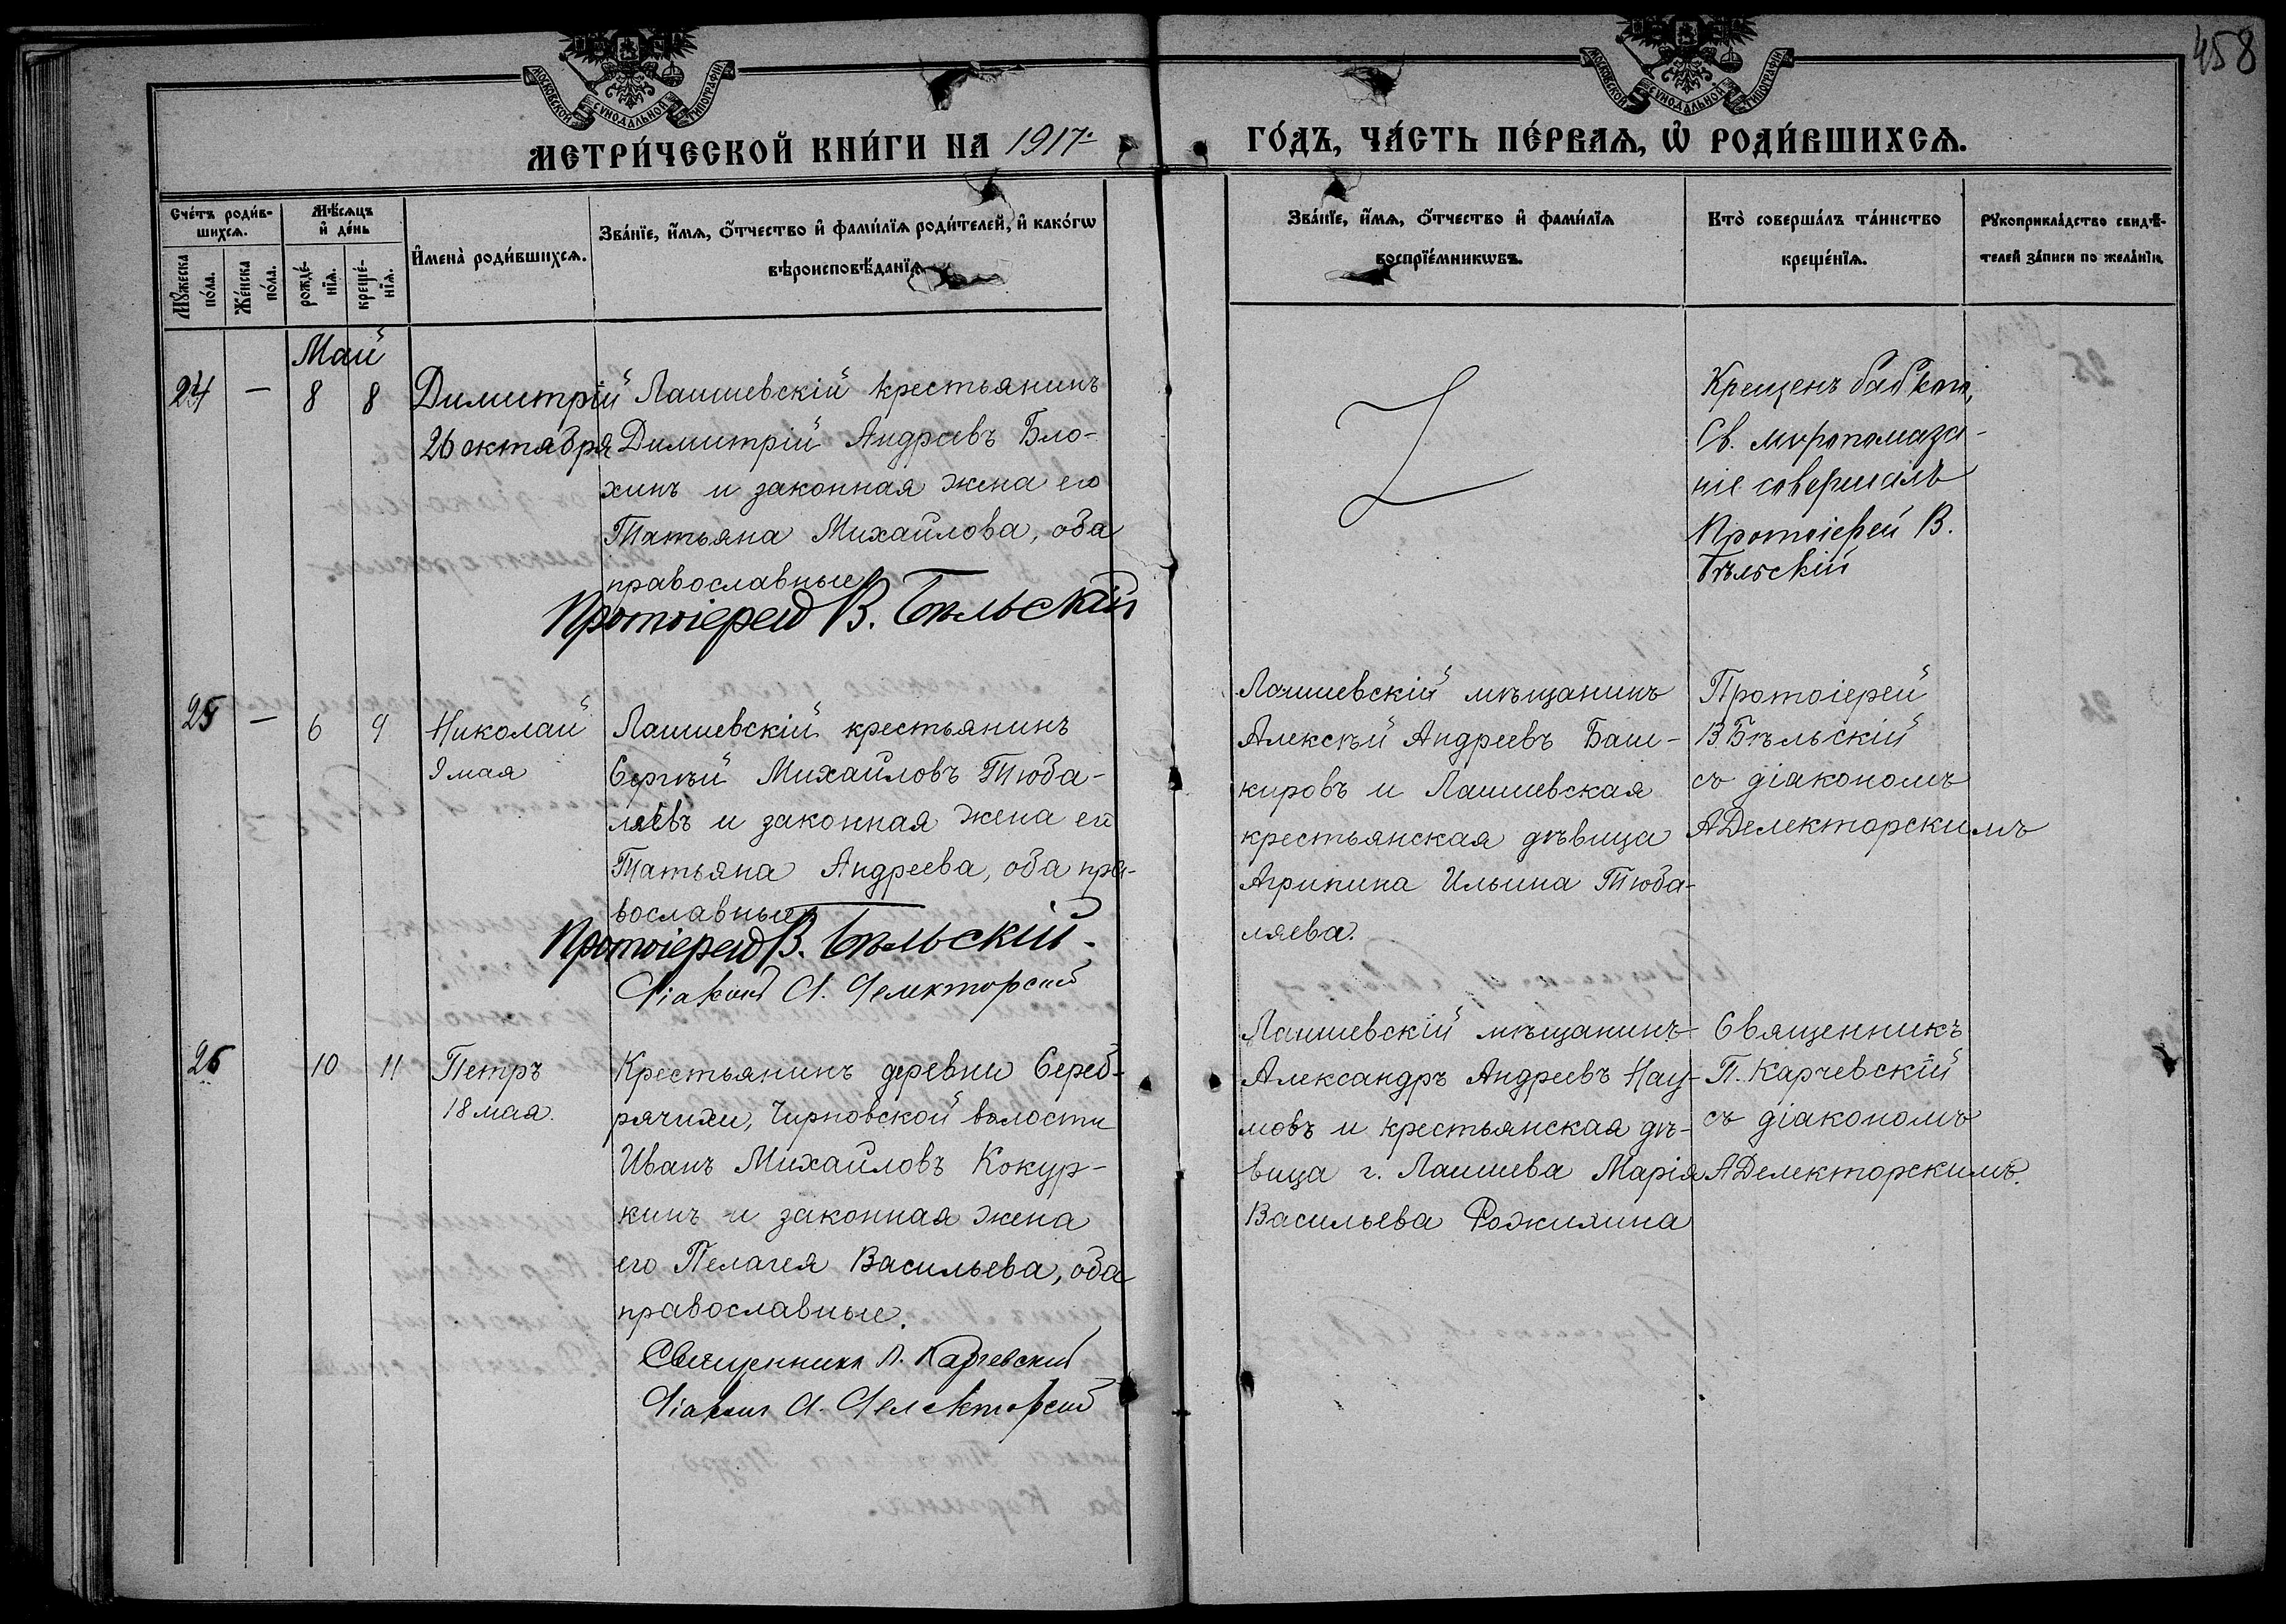 458
МОСКОВСКОЙ СѴНОДАЛЬНОЙ ТИПОГРАФІИ
МОСКОВСКОЙ СѴНОДАЛЬНОЙ ТИПОГРАФІИ
МЕТРИ́ЧЕСКОЙ КНИ́ГИ НА 1917
ГО́ДЪ, ЧА́СТЬ ПЕ́РВАѦ, Ѡ҆ РОДИ́ВШИХСѦ.
Сче́тъ роди́в-
шихсѧ.
Мѣ́сѧцъ
и҆ де́нь
Мꙋ́жеска
по́ла.
Же́нска
по́ла.
рожде́-
нїѧ.
креще́-
нїѧ.
И҆мена̀ роди́вшихсѧ.
Зва́нїе, и҆́мѧ, ѻ҆́тчество и҆ фами́лїѧ роди́телей, и҆ како́гѡ
вѣроисповѣ́данїѧ.
Зва́нїе, и҆́мѧ, ѻ҆́тчество и҆ фами́лїѧ
воспрїе́мникѡвъ.
Кто̀ соверша́лъ та́инство
креще́нїѧ.
Рꙋкоприкла́дство свидѣ́-
телей за́писи по жела́нїю.
Май
24 — 8 8
Димитрій
26 октября
Лаишевскій крестьянинъ
Димитрій Андреевъ Бло-
хинъ и законная жена его
Татьяна Михайлова, оба
православные
Протоіерей В. Бѣльскій
Крещенъ бабкою,
Св. миропомаза-
ніе совершалъ
Протоіерей В.
Бѣльскій
25 — 6 9
Николай
9 мая
Лаишевскій крестьянинъ
Сергѣй Михайловъ Тюба-
ляевъ и законная жена его
Татьяна Андреева, оба пра-
вославные
Протоіерей В. Бѣльскій.
Діаконъ А. Делекторскій
Лаишевскій мѣщанинъ
Алексѣй Андреевъ Баш-
кировъ и Лаишевская
крестьянская дѣвица
Агрипина Ильина Тюба-
ляева.
Протоіерей
В. Бѣльскій
съ діакономъ
А Делекторскимъ
26 10 11
Петръ
18 мая.
Крестьянинъ деревни Сереб-
рячихи, Чирповской волости
Иванъ Михайловъ Кокур-
кинъ и законная жена
его Пелагея Васильева, оба
православные.
Священникъ П. Карчевскій
Діаконъ А. Делекторскій
Лаишевскій мѣщанинъ
Александръ Андреевъ Нау-
мовъ и крестьянская дѣ-
вица г. Лаишева Марія
Васильева
Священникъ
П. Карчевскій
съ діакономъ
А Делекторскимъ.